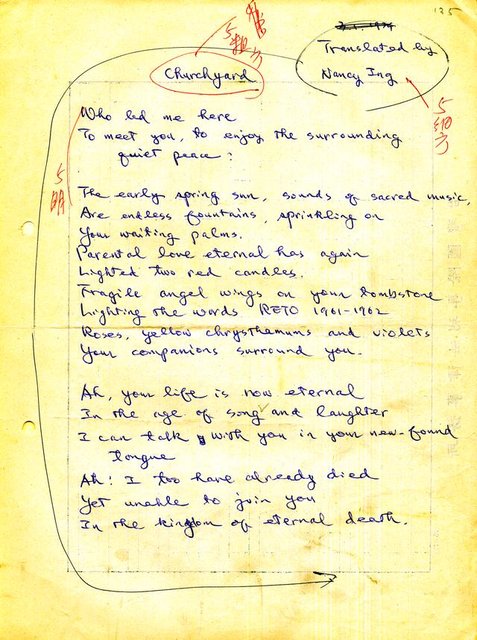 135
Translated by
Nancy Ing
Churchyard
5
5
5
明
Who led me here
To meet you, to enjoy the surrounding
quiet peace?
The early spring sun, sounds of sacred music,
Are endless fountains, sprinkling on
Your waiting palms.
Parental love eternal has again
Lighted two red candles.
Fragile angel wings on your tombstone
Lighting the words RETO 1961-1962
Roses, yellow chrysthemums and violets
Your companions surround you.
Ah, your life is now eternal
In the age of song and laughter
I can talk with you in your new-found
tongue
Ah! I too have already died
Yet unable to join you
In the kingdom of eternal death.